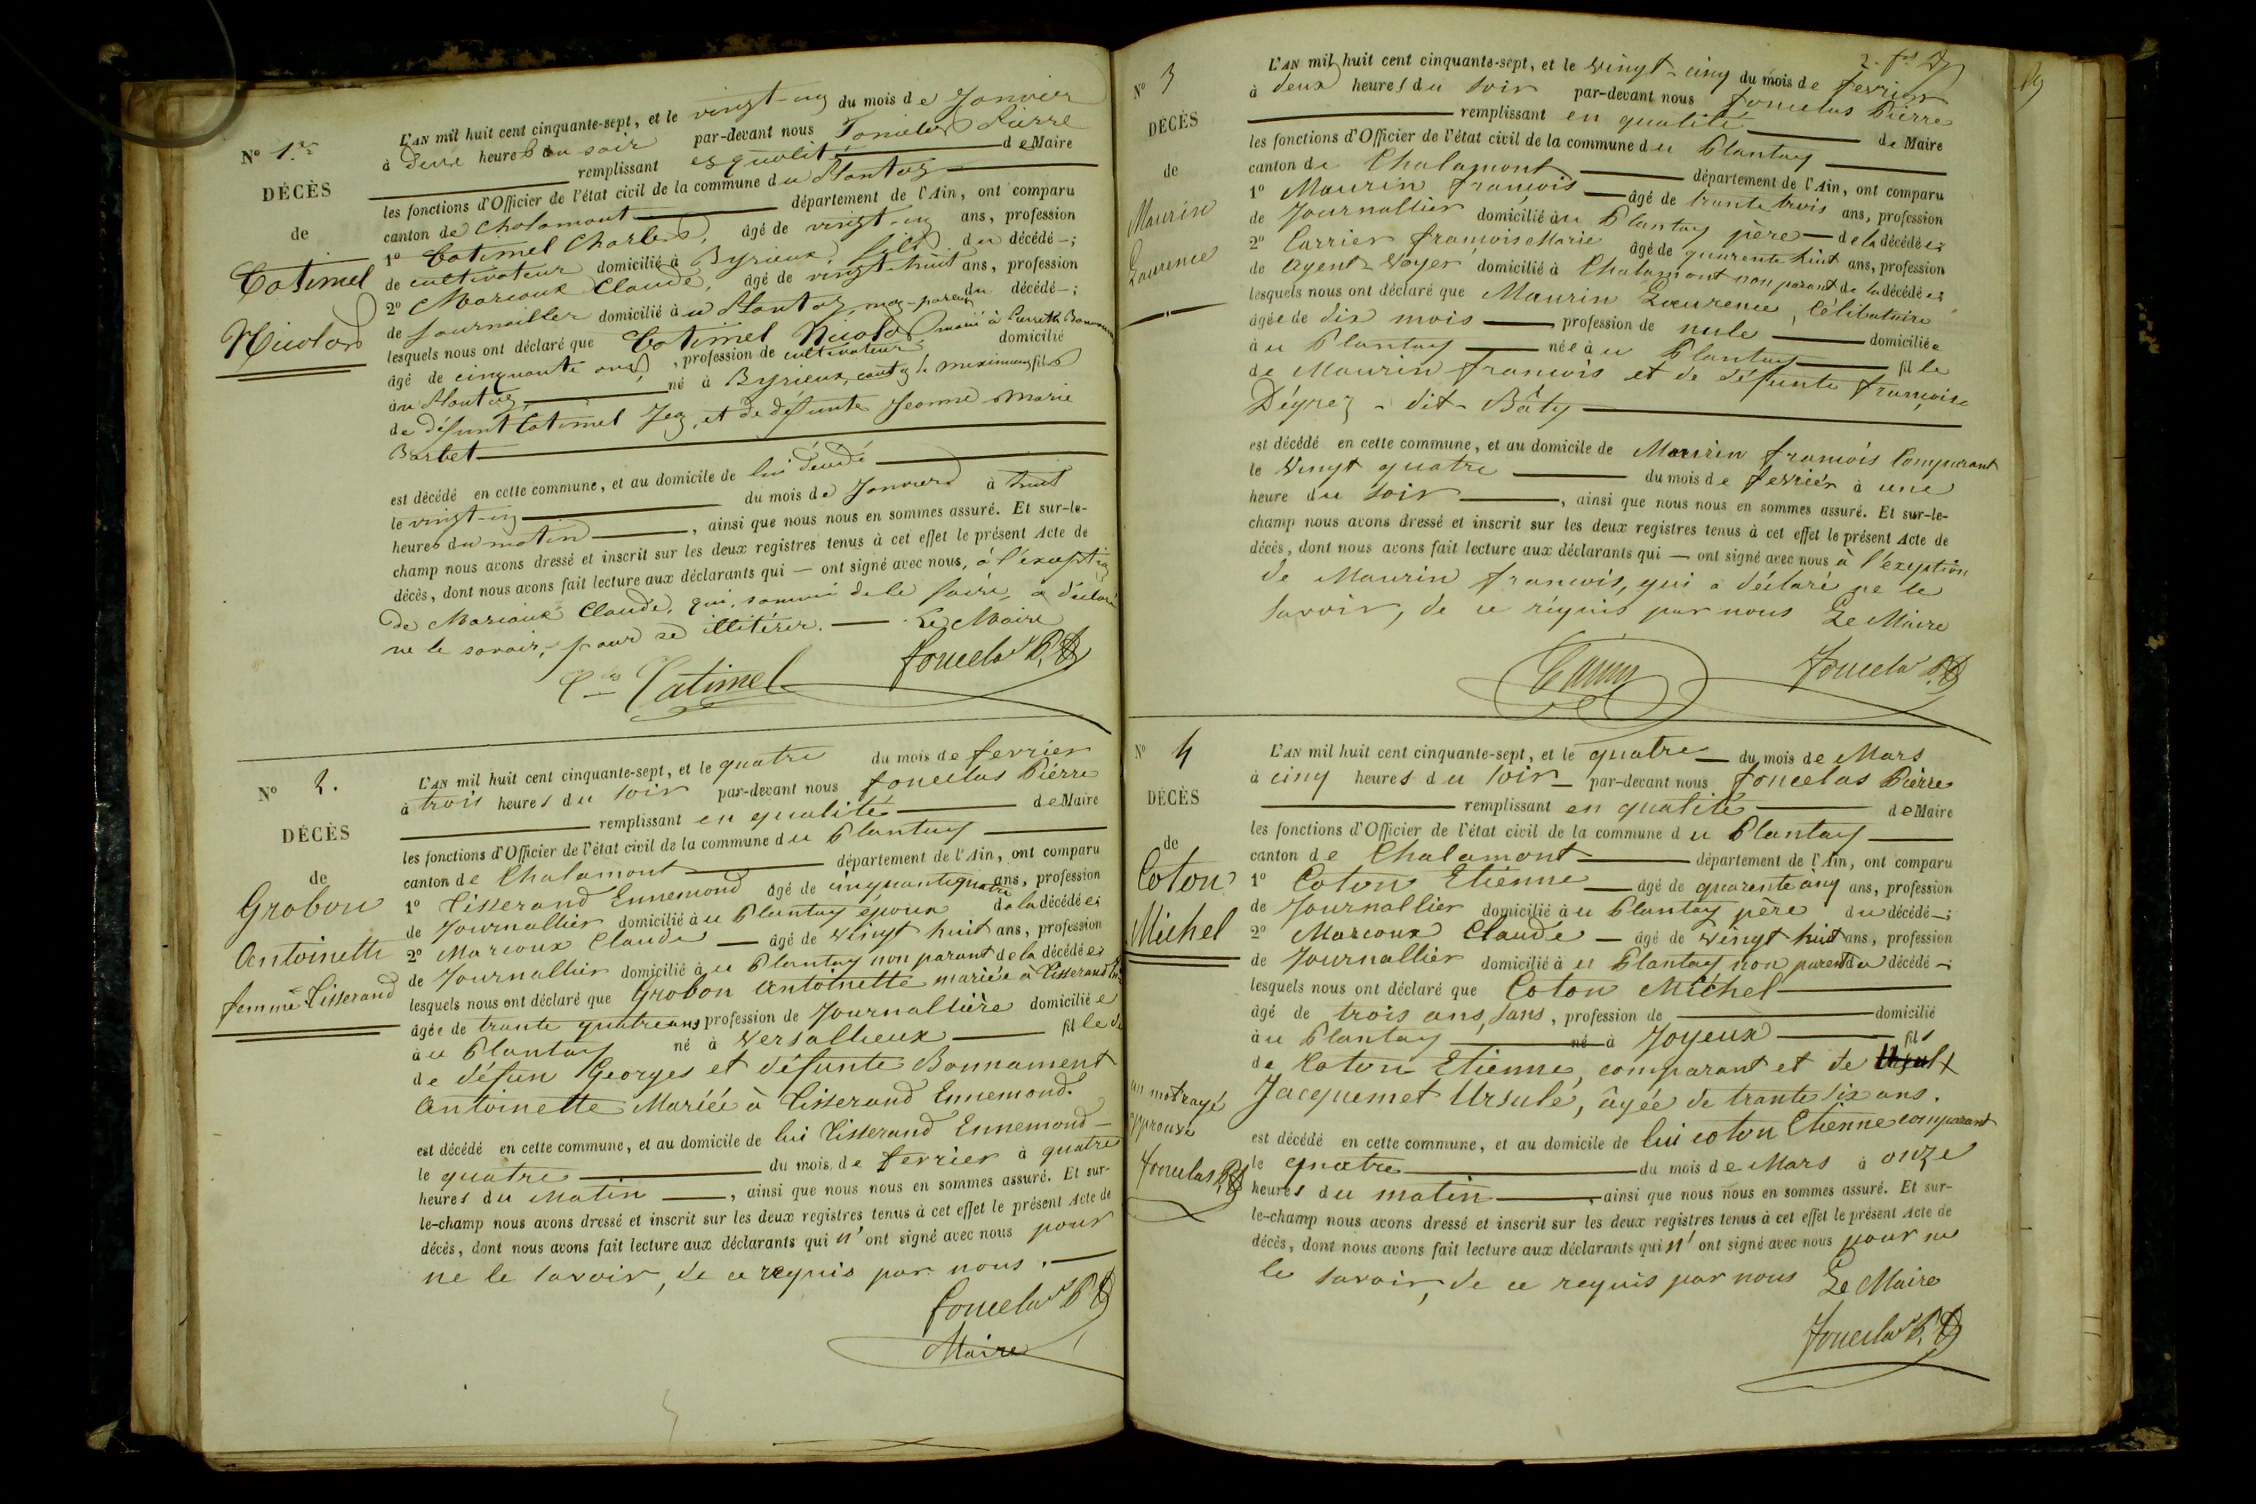 N° 1er
DÉCÈS
de
Catimel
Nicolas
L'AN mil huit cent cinquante-sept, et le vingt-un du mois de Janvier
à deux heures du soir par-devant nous Foncelas Pierre
remplissant en qualité de Maire
les fonctions d'Officier de l'état civil de la commune du Plantay
canton de Chalamont département de l'Ain, ont comparu
1° Catimel Charles, âgé de vingt-un ans, profession
de cultivateur domicilié à Byrieux, fils du décédé ;
2° Marioux Claude, âgé de vingt-huit ans, profession
de journailler domicilié au Plantay, non-parent du décédé ;
lesquels nous ont déclaré que Catimel Nicolas, marié à
âgé de cinquante ans, profession de cultivateur domicilié
au Plantay, né à Byrieux, canton de Meximieux fils
de défunt Catimel Jean, et de défunte Jeanne Marie
Barbet
est décédé en cette commune, et au domicile de lui décédé
le vingt-un du mois de Janvier à huit
heures du matin, ainsi que nous nous en sommes assuré. Et sur-le-
champ nous avons dressé et inscrit sur les deux registres tenus à cet effet le présent Acte de
décès, dont nous avons fait lecture aux déclarants qui — ont signé avec nous, à l'exception
de Marioux Claude, qui, sommé de le faire, a déclaré
ne le savoir, pour se illitérer. Le Maire
Catimel Foncelas P.
N° 2.
DÉCÈS
de
Grobon
Antoinette
femme Tisserand
L'AN mil huit cent cinquante-sept, et le quatre du mois de fevrier
à trois heures du soir par-devant nous foncelas Pierre
remplissant en qualité de Maire
les fonctions d'Officier de l'état civil de la commune du Plantay
canton de Chalamont département de l'Ain, ont comparu
1° Tisserand Ennemond âgé de cinquante quatre ans, profession
de Journallier domicilié au Plantay époux de la décédée ;
2° Marioux Claude — âgé de vingt huit ans, profession
de Journallier domicilié au Plantay non parant de la décédée ;
lesquels nous ont déclaré que Grobon Antoinette mariée à Tisserand
âgée de trante quatre ans profession de Journallière domiciliée
au Plantay né à Versallieux fille de
de défun Georges et défunte Bonnament
Antoinette Mariée à Tisserand Ennemond.
est décédé en cette commune, et au domicile de lui Tisserand Ennemond
le quatre du mois de fevrier à quatre
heures du Matin, ainsi que nous nous en sommes assuré. Et sur-
le-champ nous avons dressé et inscrit sur les deux registres tenus à cet effet le présent Acte de
décès, dont nous avons fait lecture aux déclarants qui n'ont signé avec nous pour
ne le savoir, de ce requis par nous.
foncelas P.
Maire
N° 3
DÉCÈS
de
Maurin
Laurence
L'AN mil huit cent cinquante-sept, et le vingt-cinq du mois de fevrier
à deux heures du soir par-devant nous foncelas Pierre
remplissant en qualité de Maire
les fonctions d'Officier de l'état civil de la commune du Plantay
canton de Chalamont département de l'Ain, ont comparu
1° Maurin françois — âgé de trante trois ans, profession
de Journallier domicilié au Plantay père — de la décédée ;
2° Carrier françois Marie âgé de quarente huit ans, profession
de Agent-Voyer domicilié à Chalamont non parant de la décédée ;
lesquels nous ont déclaré que Maurin Laurence, Célibataire
âgée de dix mois — profession de nule domiciliée
au Plantay — née au Plantay fille
de Maurin francois et de défunte françoise
Dégrez - dit - Bâty
est décédé en cette commune, et au domicile de Maurin francois Comparant
le vingt quatre du mois de fevrier à une
heure du soir, ainsi que nous nous en sommes assuré. Et sur-le-
champ nous avons dressé et inscrit sur les deux registres tenus à cet effet le présent Acte de
décès, dont nous avons fait lecture aux déclarants qui — ont signé avec nous à l'exeption
de Maurin francois, qui a déclaré ne le
savoir, de ce réquis par nous Le Maire
Foncelas P.
N° 4
DÉCÈS
de
Coton
Michel
L'AN mil huit cent cinquante-sept, et le quatre du mois de Mars
à cinq heures du soir — par-devant nous foncelas Pierre
remplissant en qualité de Maire
les fonctions d'Officier de l'état civil de la commune du Plantay
canton de Chalamont département de l'Ain, ont comparu
1° Coton Etiénne — âgé de quarente cinq ans, profession
de Journallier domicilié au Plantay père du décédé ;
2° Marcoux Claude — âgé de vingt huit ans, profession
de Journallier domicilié à u Plantay non parent du décédé ;
lesquels nous ont déclaré que Coton Michel
âgé de trois ans, sans, profession de domicilié
au Plantay né à Joyeux fils
de Coton Etienne, comparant et de
Jacquemet Ursule, âgée de trante six ans.
un mot rayé
approuvé
Foncelas P.
est décédé en cette commune, et au domicile de lui coton Etienne comparant
le quatre du mois de Mars à onze
heures du matin, ainsi que nous nous en sommes assuré. Et sur-
le-champ nous avons dressé et inscrit sur les deux registres tenus à cet effet le présent Acte de
décès, dont nous avons fait lecture aux déclarants qui n'ont signé avec nous pour ne
le savoir, de ce requis par nous Le Maire
Foncelas P.